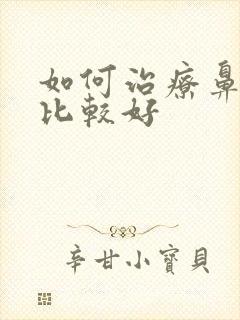 如何治療鼻
比較好
辛甘小寶貝